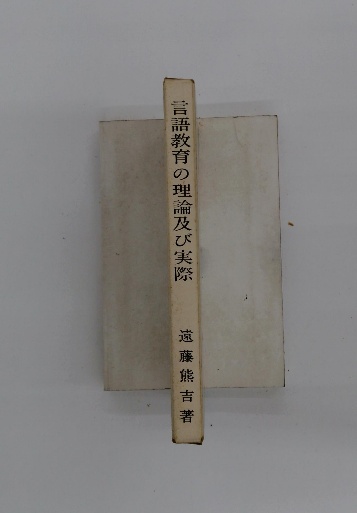 言語教育の理論及び実際
遠藤熊吉著